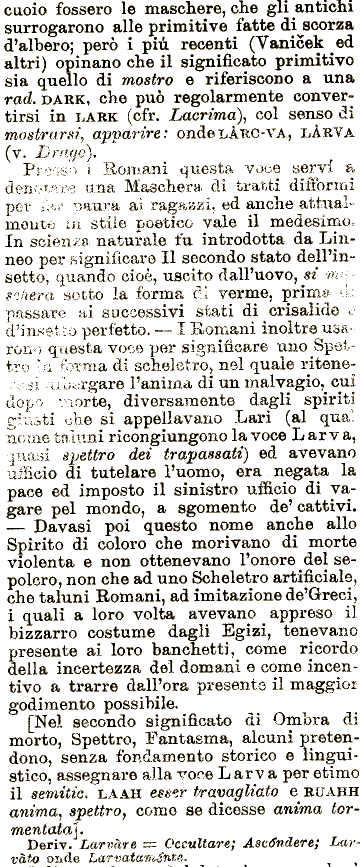 cuoio fossero le maschere, che gli antichi
surrogarono alle primitive fatte di scorza
d'albero; però i più recenti (Vaniček ed
altri) opinano che il significato primitivo
sia quello di mostro e riferiscono a una
rad. DARK, che può regolarmente conver-
tirsi in LARK (cfr. Lacrima), col senso di
mostrarsi, apparire: onde LÀRC-VA, LÀRVA
(v. Drago).
Presso i Romani questa voce servì a
denotare una Maschera di tratti difformi
per far paura ai ragazzi, ed anche attual-
mente in stile poetico vale il medesimo.
In scienza naturale fu introdotta da Lin-
neo per significare Il secondo stato dell'in-
setto, quando cioè, uscito dall'uovo, si ma-
schera sotto la forma di verme, prima di
passare ai successivi stati di crisalide e
d'insetto perfetto. — I Romani inoltre usa-
rono questa voce per significare uno Spet-
tro in forma di scheletro, nel quale ritene-
vasi albergare l'anima di un malvagio, cui
dopo morte, diversamente dagli spiriti
giusti che si appellavano Lari (al qual
nome taluni ricongiungono la voce Larva,
quasi spettro dei trapassati) ed avevano
ufficio di tutelare l'uomo, era negata la
pace ed imposto il sinistro ufficio di va-
gare pel mondo, a sgomento de' cattivi.
— Davasi poi questo nome anche allo
Spirito di coloro che morivano di morte
violenta e non ottenevano l'onore del se-
polcro, non che ad uno Scheletro artificiale,
che taluni Romani, ad imitazione de'Greci,
i quali a loro volta avevano appreso il
bizzarro costume dagli Egizi, tenevano
presente ai loro banchetti, come ricordo
della incertezza del domani e come incen-
tivo a trarre dall'ora presente il maggior
godimento possibile.
[Nel secondo significato di Ombra di
morto, Spettro, Fantasma, alcuni preten-
dono, senza fondamento storico e lingui-
stico, assegnare alla voce Larva per etimo
il semitic. LAAH esser travagliato e RUAHH
anima, spettro, come se dicesse anima tor-
mentata].
Deriv. Larvàre = Occultare; Ascóndere; Lar-
vàto onde Larvataménte.